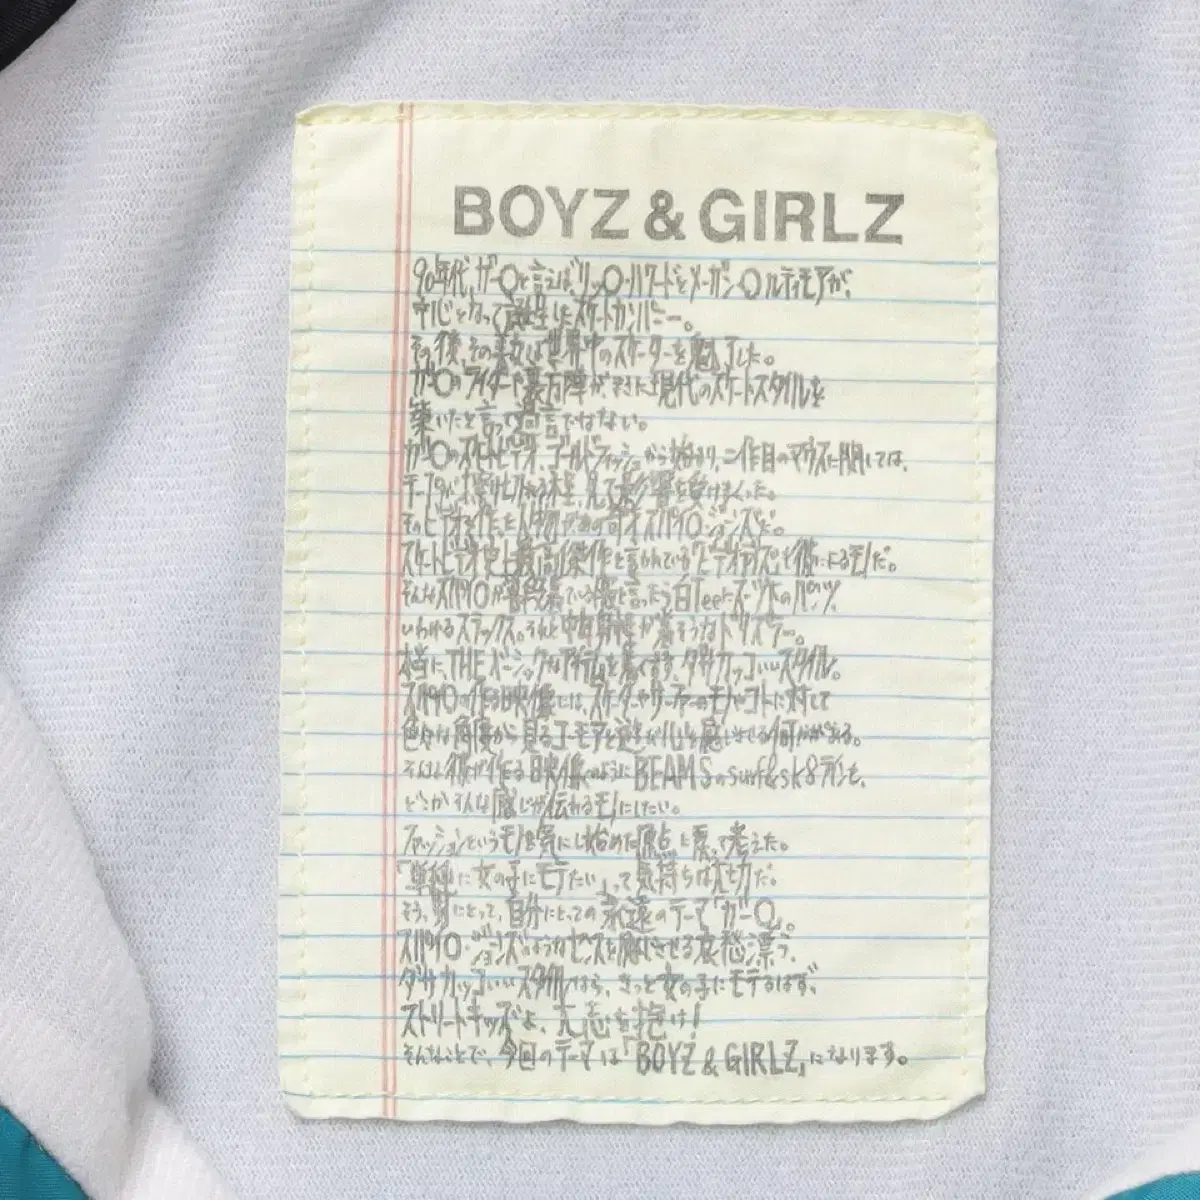 BOYZ & GIRLZ
90年代、ガー○と言えばリッ○・ハワードとメーガン・○ルティモアが、
中心となって誕生したスケートカンパニー。
その後、その美女は世界中のスケーターを魅了した。
ガー○のライダーや裏方陣が、まさに現代のスケートスタイルを
築いたと言って過言ではない。
ガー○のスケートビデオ、ゴールドフィッシュから始まり、二作目のマウスに関しては、
テープが擦り切れる程、見て影響を受けまくった。
そのビデオを作った人物があの奇才スパイ○・ジョンズだ。
スケートビデオ史上最高傑作と言われている「ビデオデイズ」も彼によるモノだ。
そんなスパイ○が普段着ている服と言ったら白Teeにスーツ地のパンツ、
いわゆるスラックス。それと中高年が着そうなドリズラー。
本当に、THE ベーシックなアイテムを着てます、ダサカッコいいスタイル。
スパイ○の作る映像には、スケーターやサーファーのモノやコトに対して
色々な角度から見るユーモアと遊び心を感じさせる何かがある。
そんな彼が作る映像のようにBEAMSのsurf&sk8ラインも、
どこかそんな感じが伝わるモノにしたい。
ファッションというモノを気にし始めた原点に戻って考えた。
「単純に女の子にモテたい」って気持ちは大切だ。
そう、男にとって、自分にとっての永遠のテーマ「ガー○」。
スパイ○・ジョンズのようなセンスを感じさせる哀愁漂う、
ダサカッコいいスタイルなら、きっと女の子にモテるはず、
ストリートキッズよ、大志を抱け!
そんなことで、今回のテーマは「BOYZ & GIRLZ」になります。